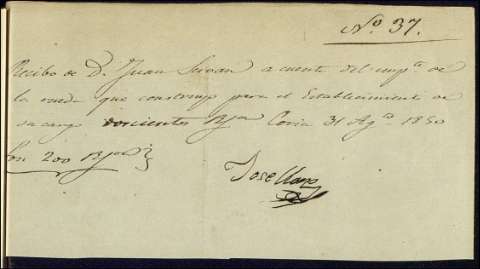 No. 37.
Recibo de D. Juan a cuenta del impte. de
la rueda que construyo para el Establecimiento de
su cargo doscientos Coria 31 Agto. 1850
Son 200
Jose